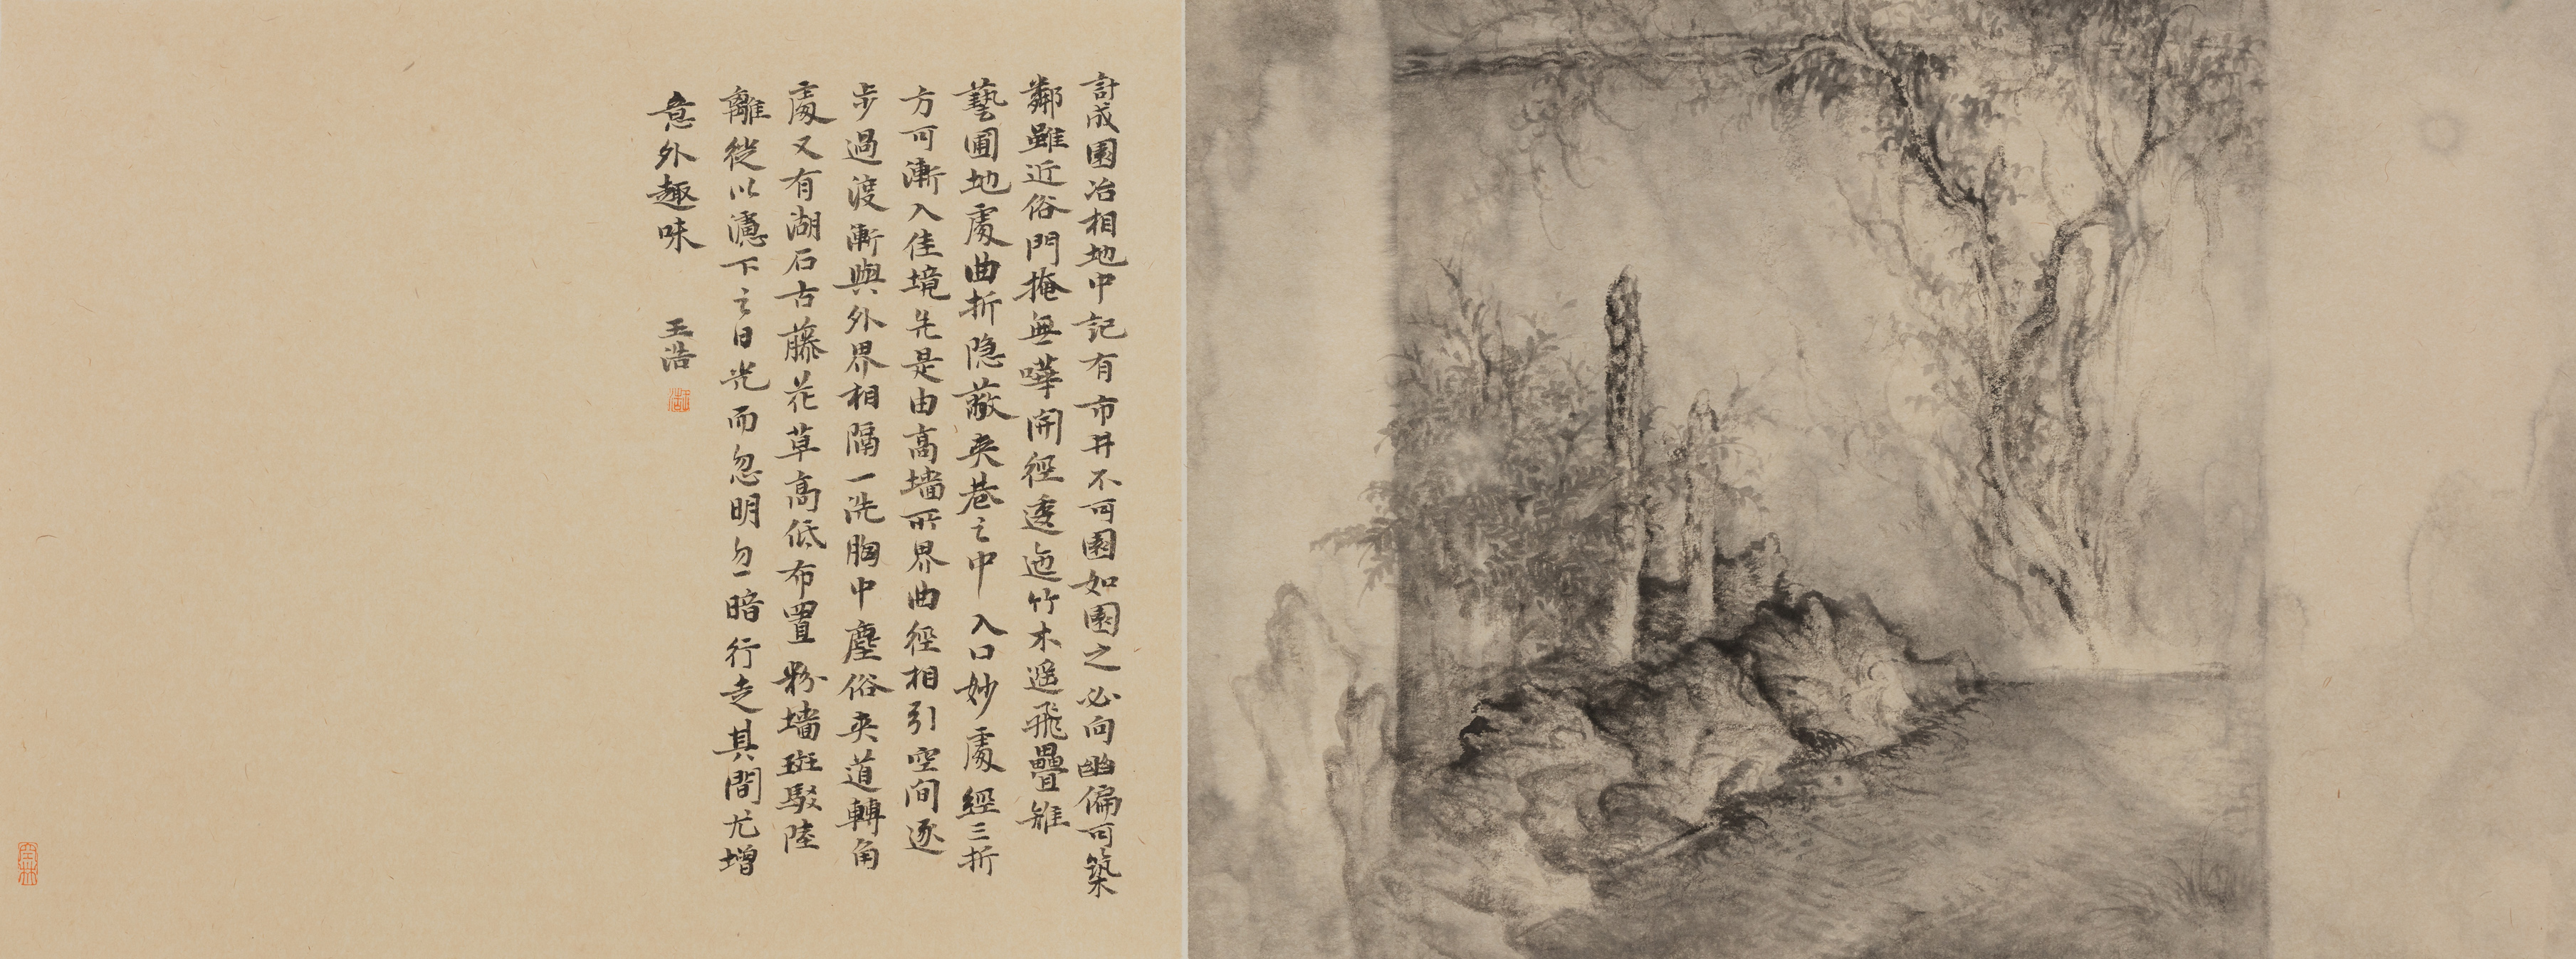 計成園冶相地中記有市井不可園如園之必向幽偏可築
鄰雖近俗門掩無嘩開徑逶迤竹木遥飛疊雉
藝圃地處曲折隐蔽夾巷之中入口妙處經三折
方可漸入佳境先是由高墙所界曲徑相引空间逐
步過渡漸與外界相隔一洗胸中塵俗夾道轉角
處又有湖石古藤花草高低布置粉墙斑駁陸
離從以濾下之日光而忽明忽暗行走其間尤增
意外趣味
王浩